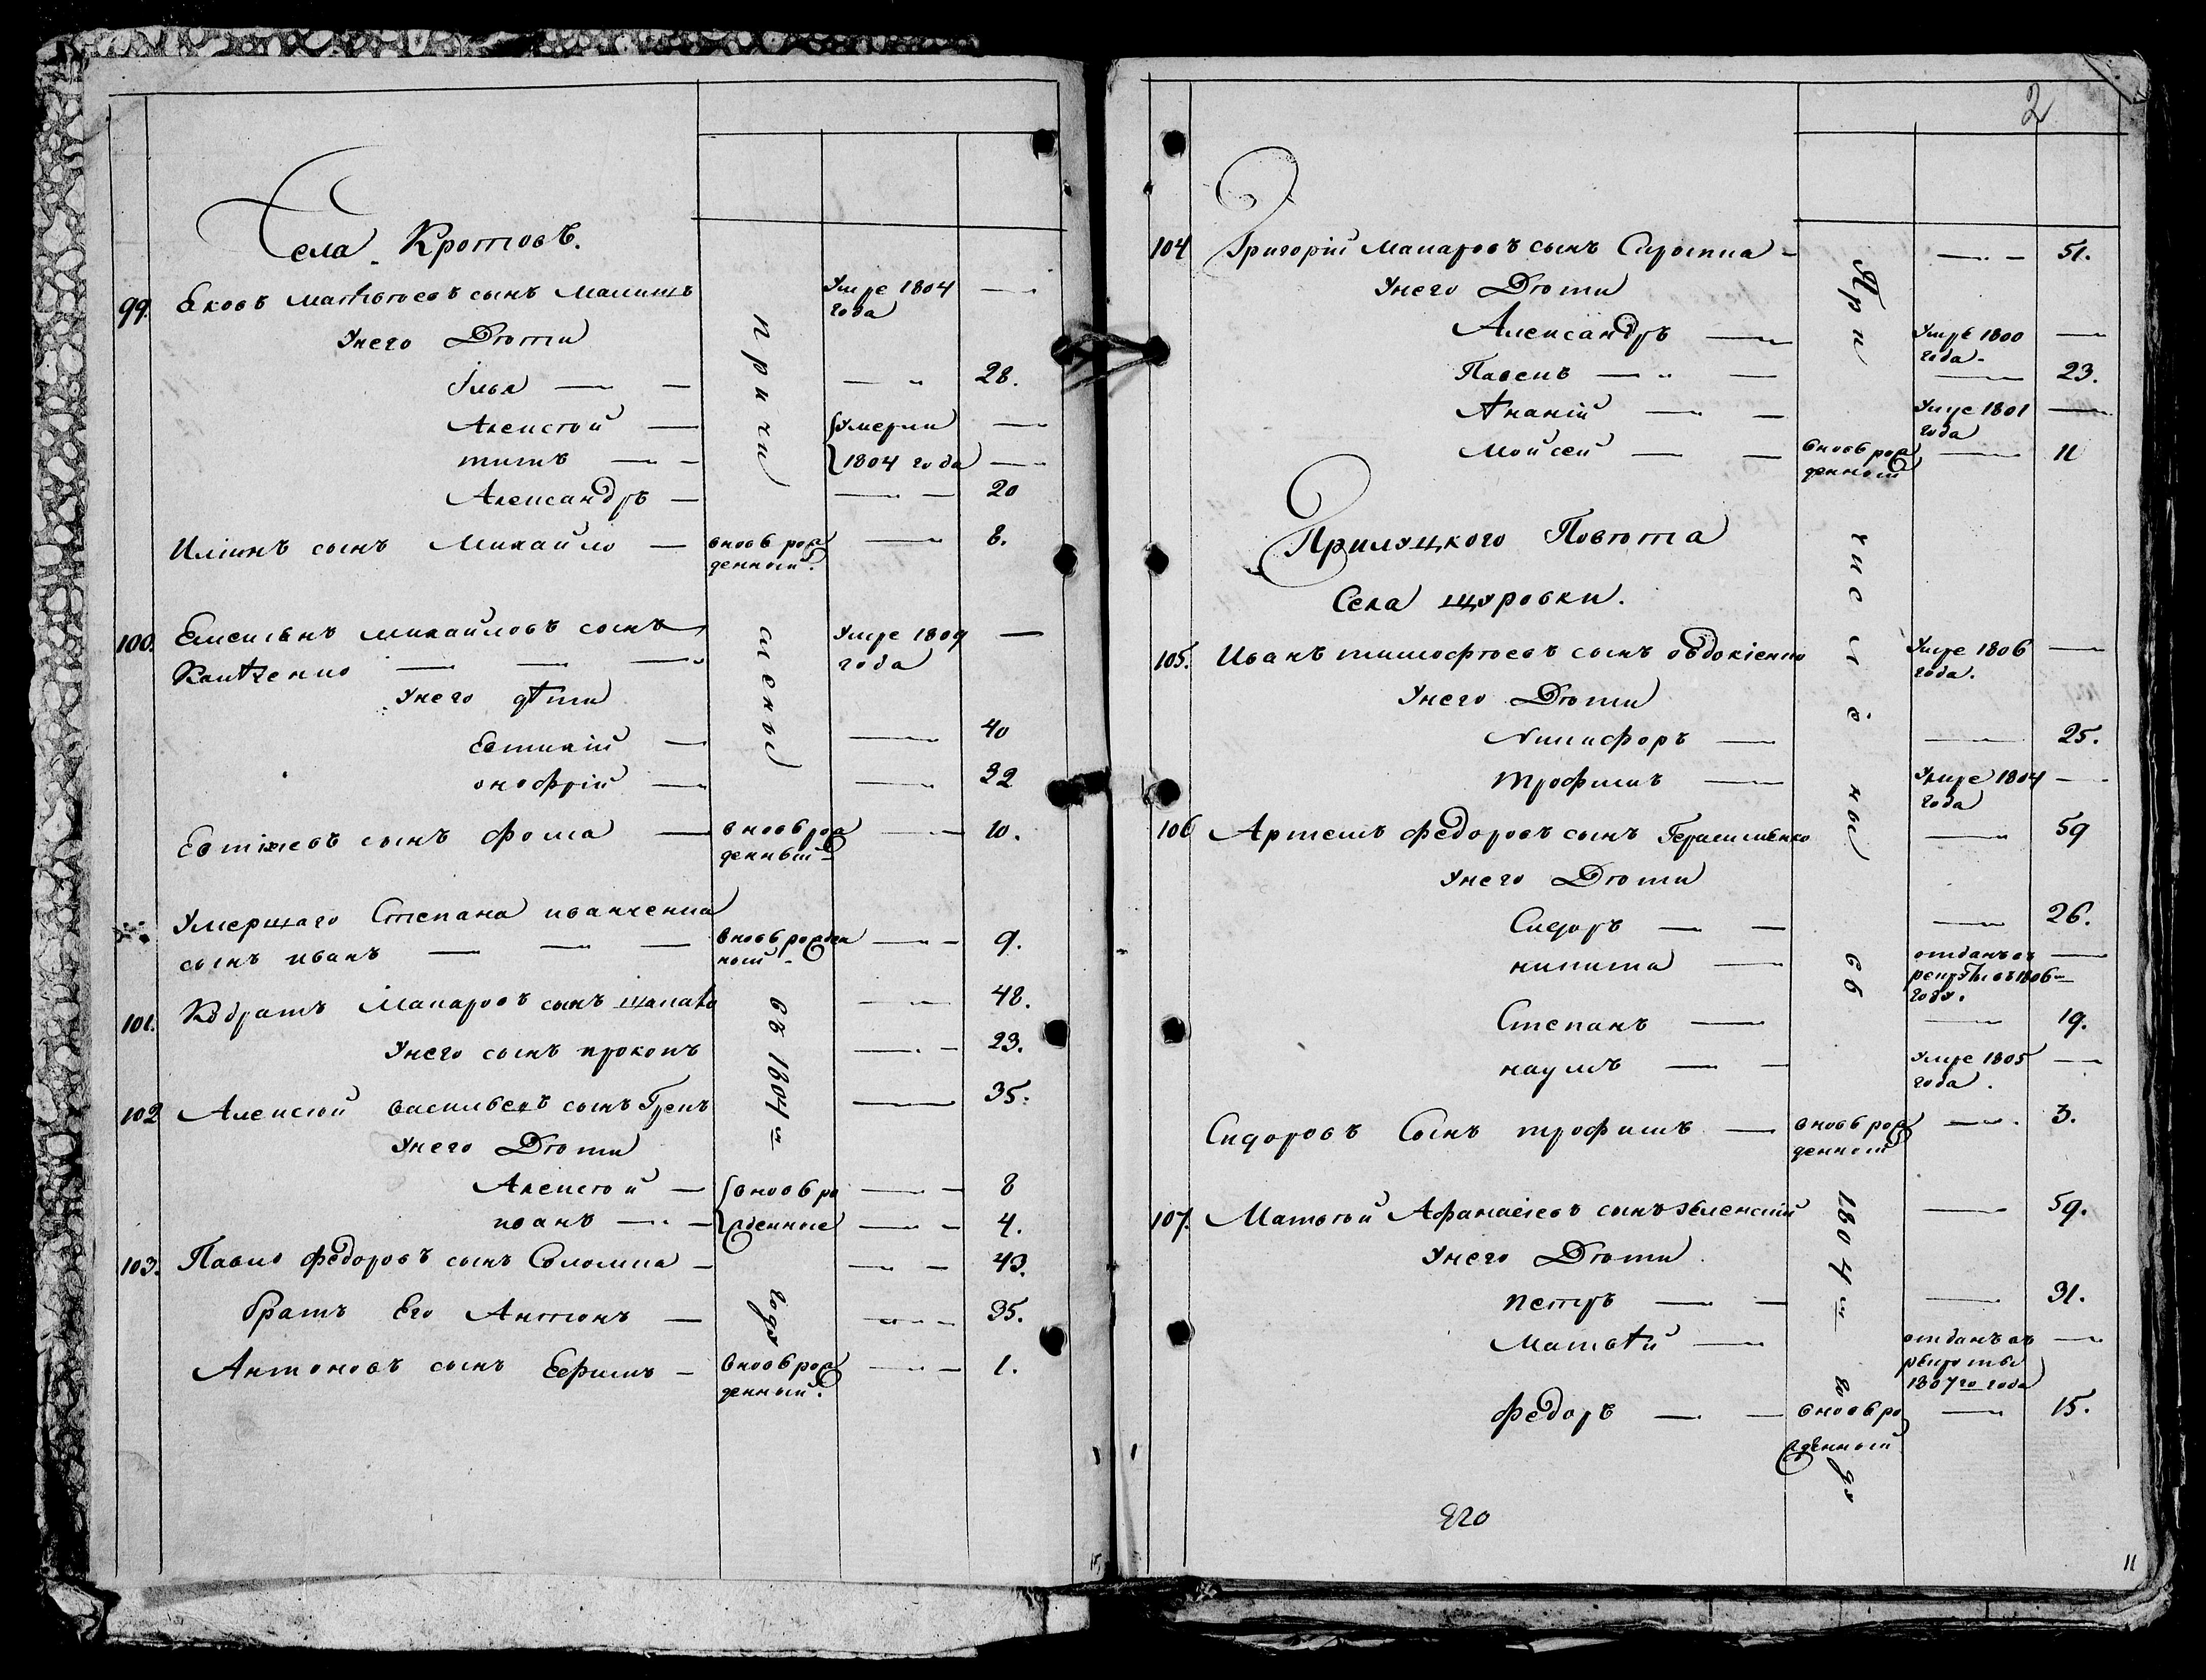 Села Кротовъ.
99. Ековъ матвѣевъ сынъ
Умре 1804 года
Унего Дѣти
Илья 28.
Алексѣй {умерли
титъ {1804 года
Александръ 20
Илiинъ сынъ Михайло вновь рож
денный. 8.
100. Емельянъ михайловъ сынъ
Умре 1809 года
Унего дѣти
Евтихiй 40
онофрiй 32
Евтiхiевъ сынъ фома вновь рож
денный 10.
Умершаго Степана иванченка
сынъ иванъ вновь рожден
ный 9.
101. Кодратъ Макаровъ сынъ 48.
Унего сынъ прокопъ 23.
102 Алексѣй васильевъ сынъ Грекъ 35.
Унего Дѣти
Алексѣй {вновь ро 8
иванъ {жденные 4.
103. Павло федоровъ сынъ Соломка 43.
братъ Его Антонъ 35.
Антоновъ сынъ Ефимъ вновь рож
денный. 1.
причи
слены
въ 1804м
году
2
104 Григорiй макаровъ сынъ Сиротка 51.
Унего Дѣти
Александръ Умре 1800
года.
Павелъ 23.
Ананiй Умре 1801
года
Мойсей вновь рож
денный 11
Прилуцкого Повѣта
Села щуровки.
105. Иванъ тимофѣевъ сынъ овдокiенко Умре 1806
года.
Унего Дѣти
Никифоръ 25.
трофимъ Умре 1804
года
106 Артемъ федоровъ сынъ Герасименко 59
Унего Дѣти
Сидоръ 26.
никита отданъ въ
рекруты въ 1806
году.
Степанъ 19.
наумъ Умре 1805
года.
Сидоровъ Сынъ трофимъ вновь рож
денный 3.
107. Матвѣй Афанасiевъ сынъ 59.
Унего Дѣти
петръ 31.
Матвѣй отданъ въ
рекруты
1807го года
федоръ вновь ро
жденный 15.
При
числе
ны
въ
1804м
го
ду
Его
11